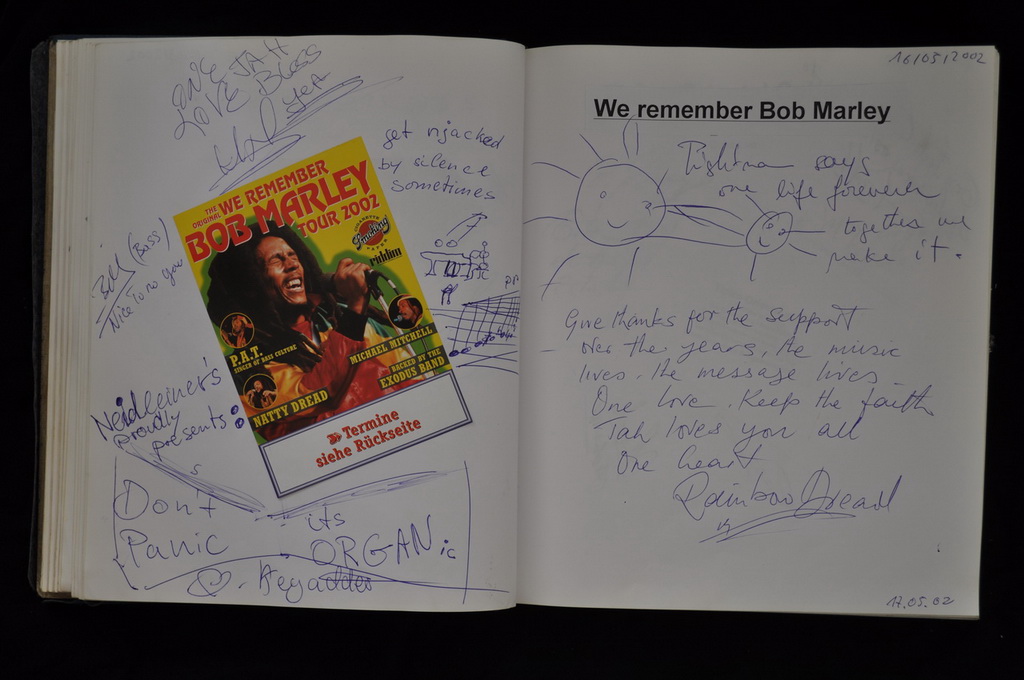 ONE JAH
LOVE Bless
get njacked
by silence
sometimes
THE ORIGINAL WE REMEMBER
BOB MARLEY
TOUR 2002
Smoking
riddim
Bill (Bass)
Nice to no you
P.A.T.
SINGER OF BASS CULTURE
NATTY DREAD
MICHAEL MITCHELL
BACKED BY THE
EXODUS BAND
» Termine
siehe Rückseite
Neidleiner's
proudly
presents:
Don't
Panic
its
ORGANic
16/05/2002
We remember Bob Marley
says
one life forever
together we
make it.
Give thanks for the support
over the years, the music
lives. the message lives
One love. Keep the faith
Jah loves you all
One heart
Rainbow Dread
17.05.02